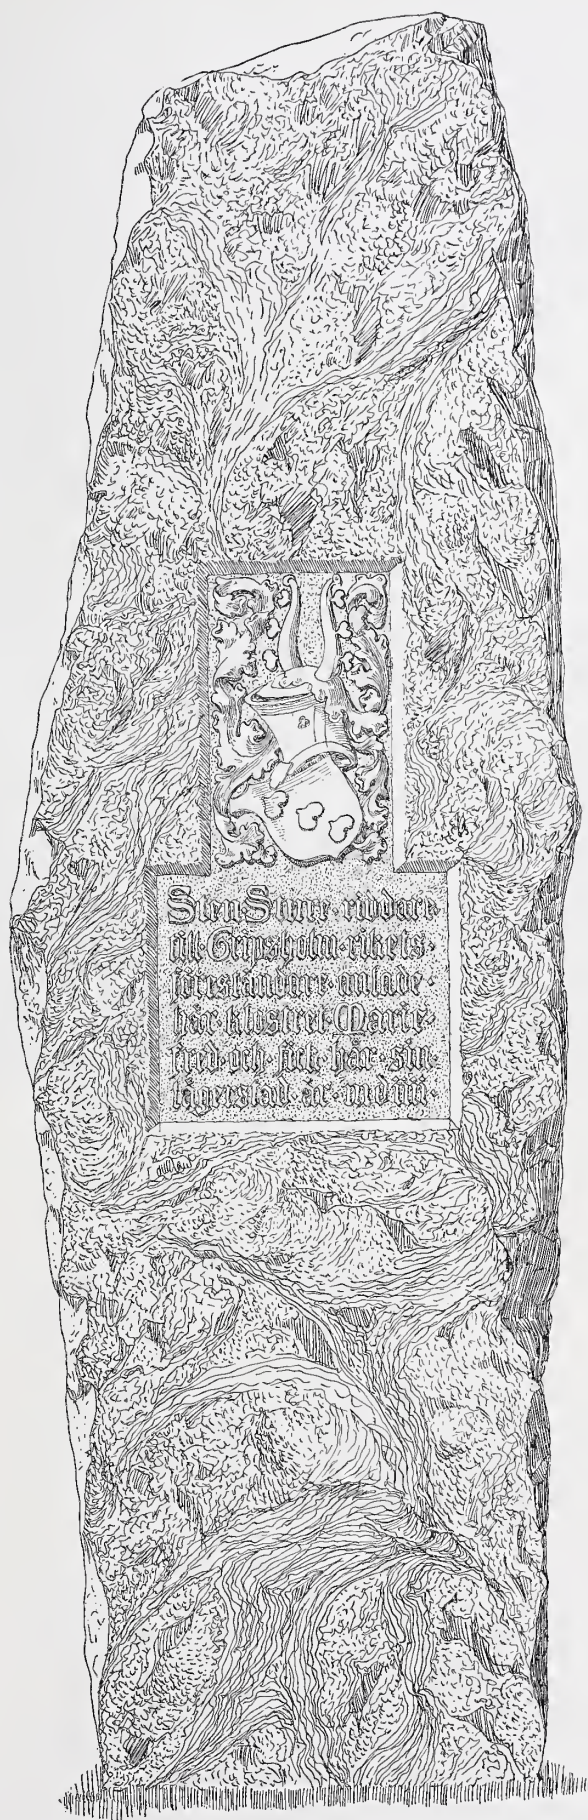 Sten·Sture·riddare
till·Gripsholm·rikets·
föreståndare·anlade·
här·klostret·Marie·
fred·och·fick·här·sin·
lägerstad·år·mdiiii·